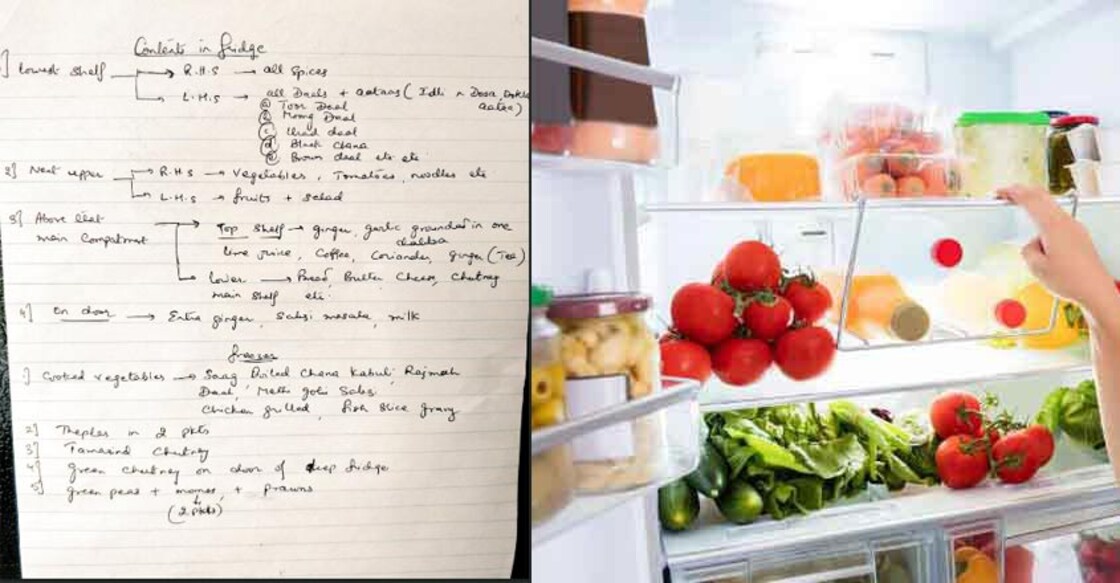 Contents in fridge
1] lowest shelf → R.H.S → all spices
L.H.S → all Daals + aataas (Idli n Dosa, Dokla
aataa)
(a) Toor Daal
(b) Moong Daal
(c) Urad daal
(d) Black Chana
(e) Brown daal etc etc
2] Next upper → R.H.S → vegetables, Tomatoes, noodles etc
L.H.S → fruits + salad
3] Above that → Top shelf → ginger, garlic grounded in one
main compartment dabba
lime juice, Coffee, Coriander, ginger (Tea)
lower → Bread, Butter Cheese, Chutney
main shelf etc.
4] On door → Extra ginger, Sabji masala, milk
freezer
1] Cooked vegetables → Saag, Boiled Chana Kabuli, Rajmah
Daal, Methi gobi Sabji
Chicken grilled, fish slice gravy
2] Theplas in 2 pkts
3] Tamarind Chutney
4] green chutney on door of deep fridge
5] green peas + momos, + prawns
(2 pkts)